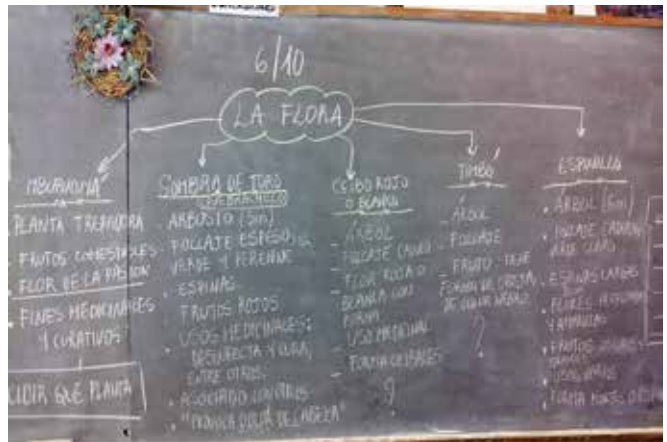 6/10
LA FLORA
MBURUCUYÁ
PLANTA TREPADORA
. FRUTOS COMESTIBLES
. FLOR DE LA PASIÓN
. FINES MEDICINALES
Y CURATIVOS
CIDIR QUÉ PLANTA
SOMBRA DE TORO
QUEBRACHILLO
. ARBUSTO (5m)
. FOLLAJE ESPESO,
VERDE Y PERENNE
. ESPINAS
. FRUTOS ROJOS
. USOS MEDICINALES:
DESINFECTA Y CURA,
ENTRE OTROS.
. ASOCIADO CON
. "PROVOCA DOLOR DE CABEZA"
CEIBO ROJO
O BLANCO
- ÁRBOL
- FOLLAJE
- FLOR ROJA O
BLANCA CON
FORMA
- USO MEDICINAL
- FORMA
?
TIMBÓ
- ÁRBOL
- FOLLAJE
- FRUTO TIENE
FORMA DE OREJA
DE COLOR NEGRO
?
ESPINILLO
. ÁRBOL (6m)
. FOLLAJE
VERDE CLARO
. ESPINAS LARGAS
. FLORES
Y AMARILLAS
. FRUTOS
. USOS VARIOS
. FORMA MONTES